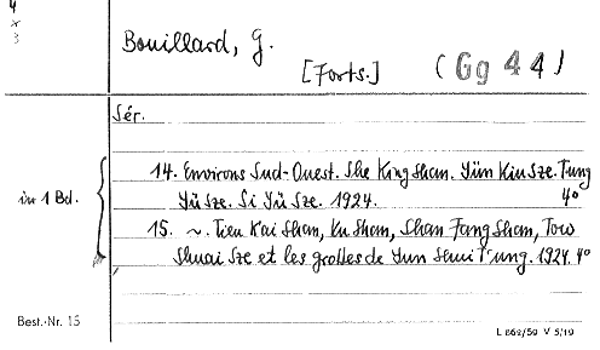 4
x
3
Bouillard, G.
[Forts.] (Gg 44)
Sér.
14. Environs Sud-Ouest. She King Shan. Yün Kiu Sze. Tung
in 1 Bd. Yü Sze. Si Yü Sze. 1924. 4°
15. ~. Tien Kai Shan, Ku Shan, Shan Fang Shan, Tow
Shuai Sze et les grottes de Yun Shui T'ung. 1924. 4°
Best.-Nr. 15
L 868/59 V 5/19